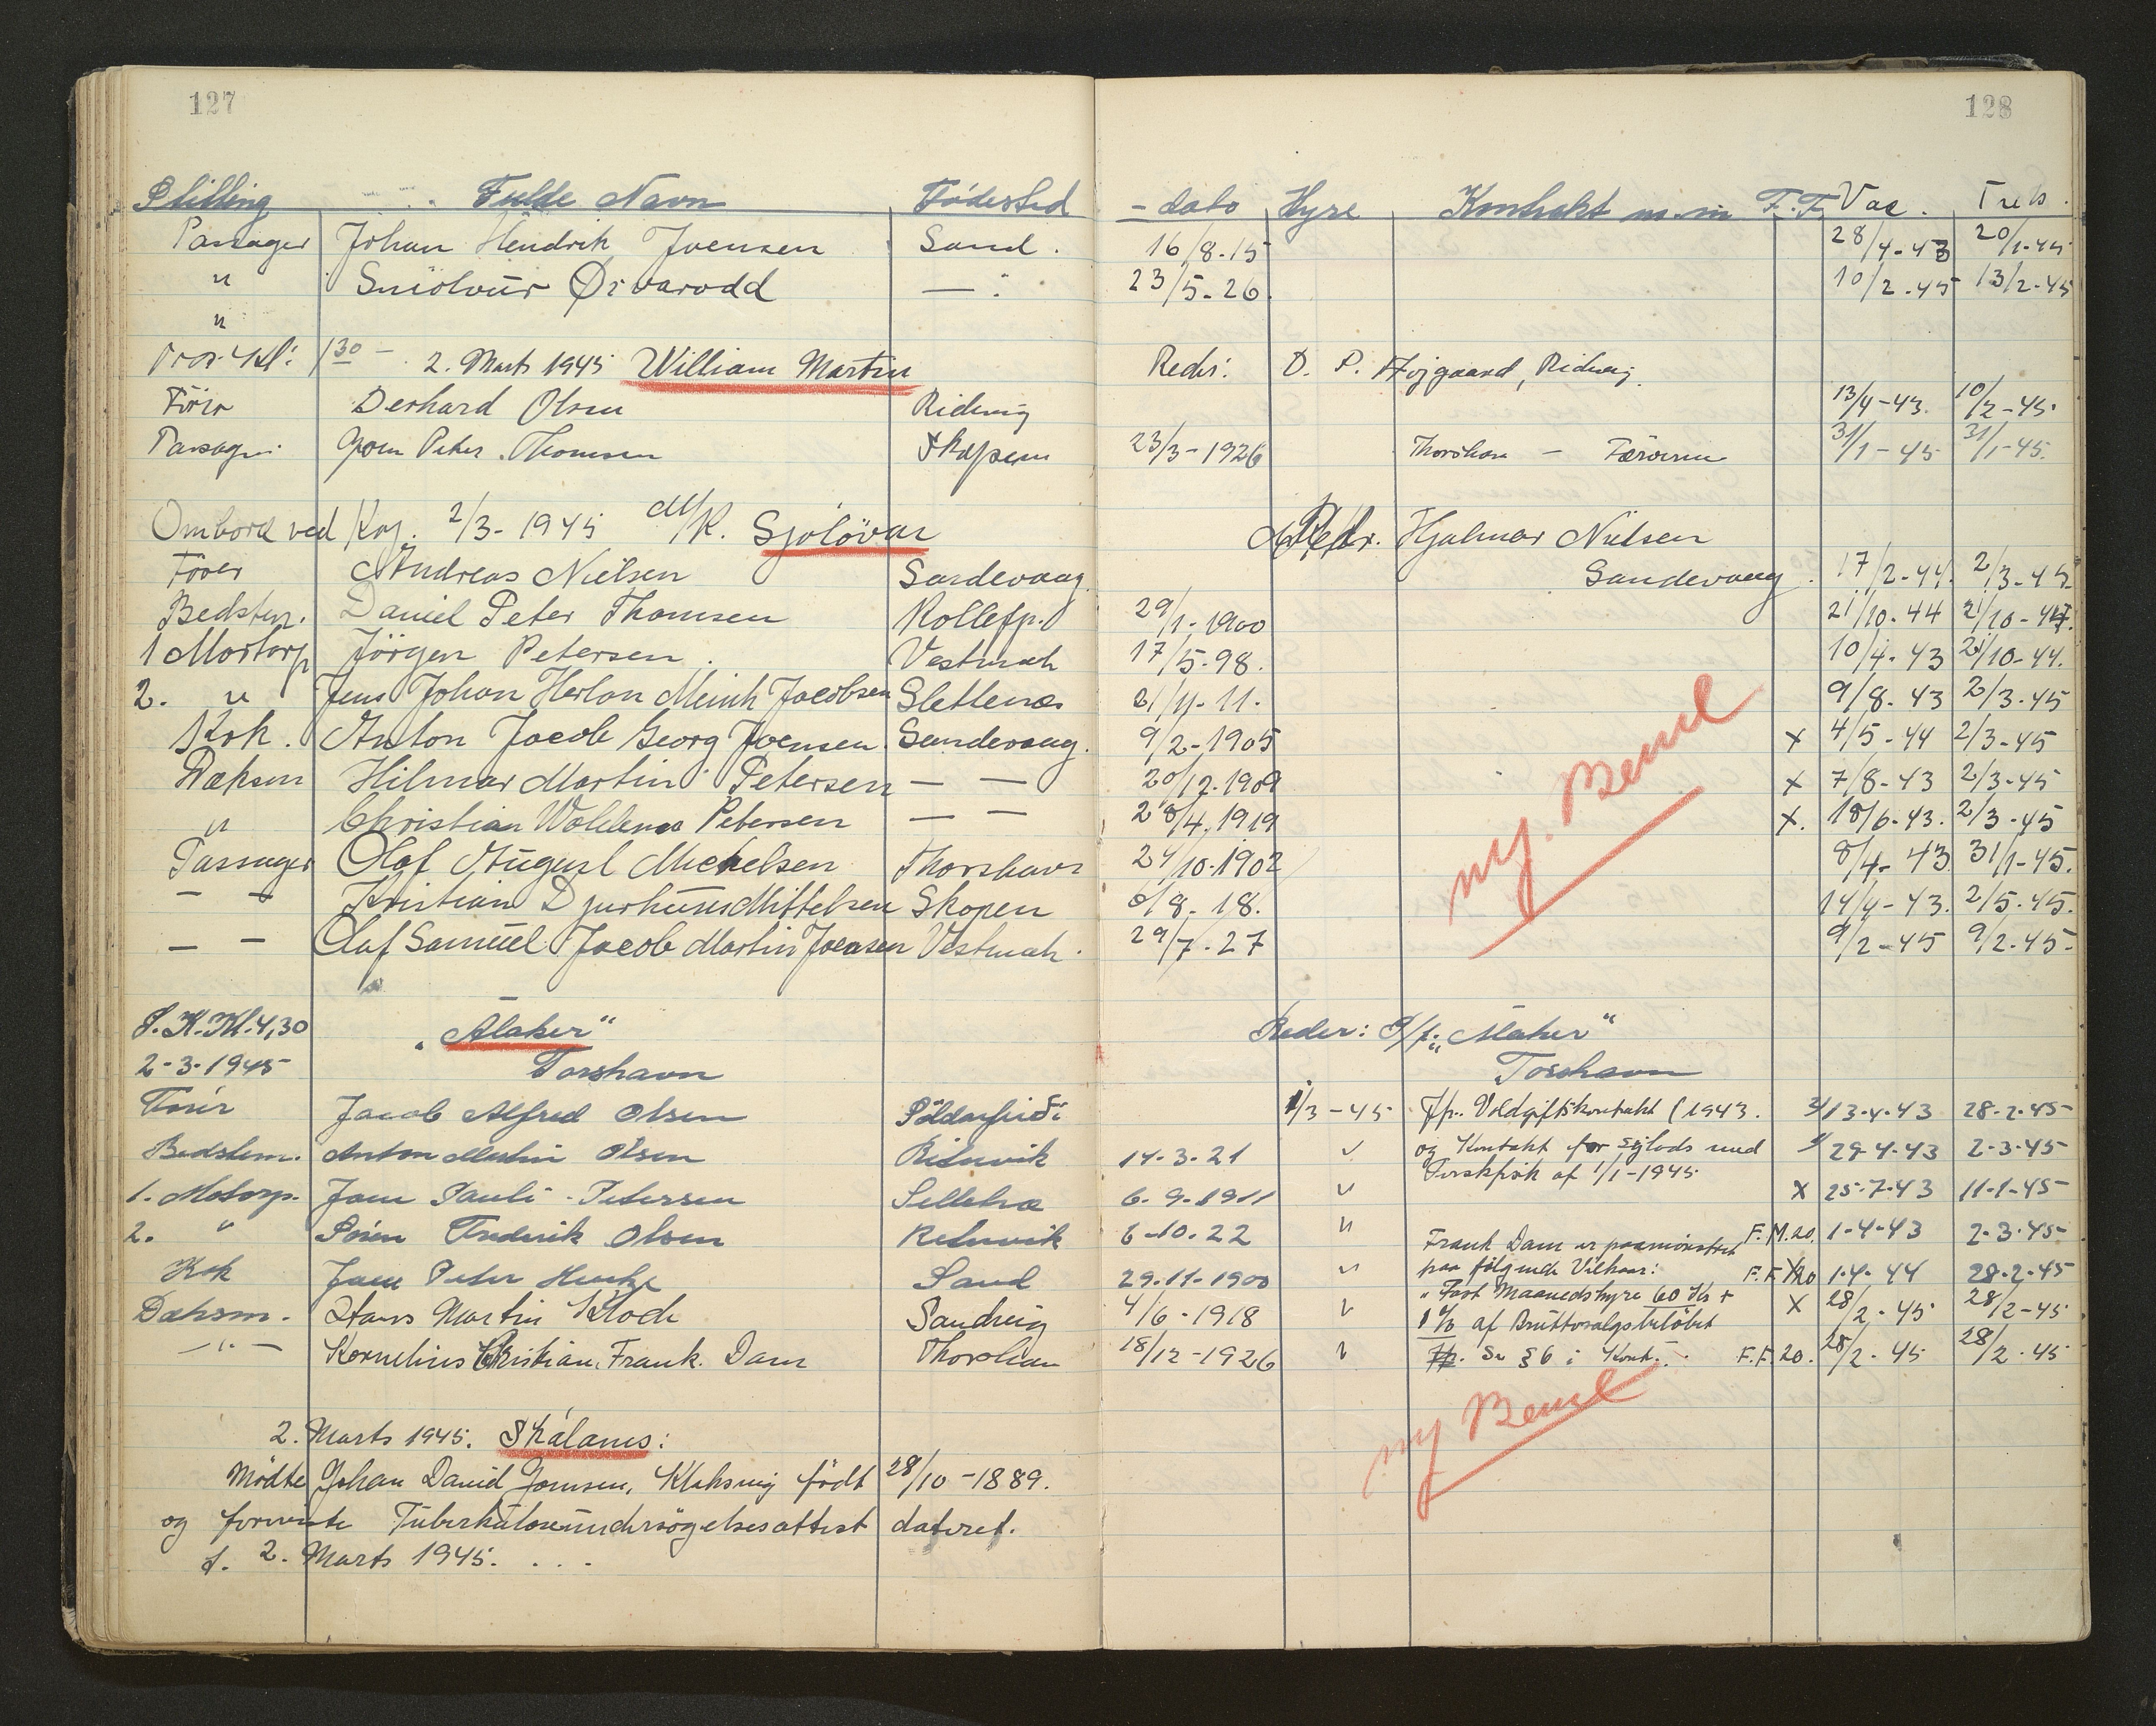 127 128
Stilling Fulde Navn Födested - dato Hyre Kontrakt m.m F.F. Vac. Tub.
Passager Johan Hendrik Joensen Sand. 16/8-15 28/4-43 20/1-45
" Sniolvur Örvarodd — " 23/5-26. 10/2-45 13/2-45
"
Kl: 1 30 - 2. Marts 1945 William Martin Reder: D. P. Højgaard, Ridevig.
Förer Derhard Olsen Ridevig 13/4-43. 10/2-45.
Passager Joen Peter Thomsen Skopun 23/3-1926 Thorshavn — Færöerne 31/1-45 31/1-45.
Ombord ved Kaj. 2/3-1945 M/K. Sjolövar Redr. Hjalmar Nielsen
Förer Andreas Nielsen Sandevaag Sandevaag. 17/2-44. 2/3-45.
Bedstm. Daniel Peter Thomsen Kollefj. 29/1-1900 21/10-44 21/10-44.
1 Motorp Jörgen Petersen. Vestmah 17/5-98. 10/4-43 21/10-44.
2. " Jens Johan Herlon Meinh Jacobsen Slettenæs 21/11-11. 9/8-43 2/3-45
Kok. Anton Jacob Georg Joensen. Sandevaag. 9/2-1905 x 4/5-44 2/3-45
Dæksm Hilmar Martin Petersen — — 20/12-1909 x 7/8-43 2/3-45
" Christian Woldemar Petersen — — 28/4.1919 x. 18/6-43. 2/3-45
Passager Olaf August Michelsen Thorshavn 24/10-1902 8/4-43 31/1-45.
— — Kristian Djurhuus Mittelsen Skopen 6/8-18. 14/4-43. 2/5-45.
— — Olaf Samuel Jacob Martin Joensen Vestmah. 29/7-27 9/2-45 9/2-45.
ny. Bemd
P.K. Kl. 4,30 „Alaker“ Reder: P/f. „Alaker“
2-3-1945 Torshavn Torshavn
Förer Jacob Alfred Olsen Söldarfirði 1/3-45 Jfp. Voldgiftskontrakt (1943. 13-4-43 28-2-45
Bedstem. Anton Martin Olsen Rituvik 14-3-21 " og Kontrakt for Sejlads med 29-4-43 2-3-45
Ferskfisk af 1/1-1945
1. Motorp. Joen Pauli Petersen Selletræ 6-9-1911 " x 25-7-43 11-1-45
2. " Sören Frederik Olsen Rituvik 6-10-22 " Frank Dam er paamönstret F.M.20. 1-4-43 2-3-45
Kok Joen Peter Hentze Sand 29-11-1900 " paa fölgende Vilkaar: F.F.20 1-4-44 28-2-45
Dæksm. Hans Martin Kloch Sandvig 4/6-1918 " „Fast Maanedshyre 60 Kr + x 28/2-45 28/2-45
1% af Bruttosalgsbelöbet
—"— Kornelius Christian Frank. Dam Thorshavn 18/12-1926 " Jfp. Se § 6 i Kont. F.F.20. 28/2-45 28/2-45
ny Bemd
2. Marts 1945. Skálanes:
Mödte Johan David Joensen, Klaksvig födt 28/10-1889.
og foreviste Tuberkuloseundersögelsesattest dateret.
d. 2. Marts 1945. . . .